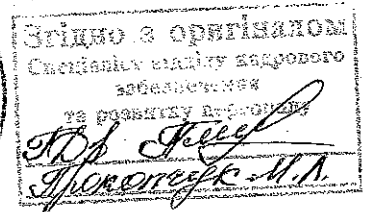 Згідно з оригіналом
Спеціаліст відділу кадрового
забезпечення
та розвитку персоналу
Прокопчук М.Л.